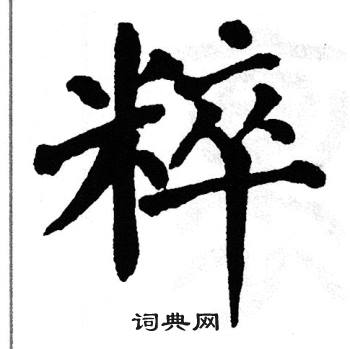 粹
词典网